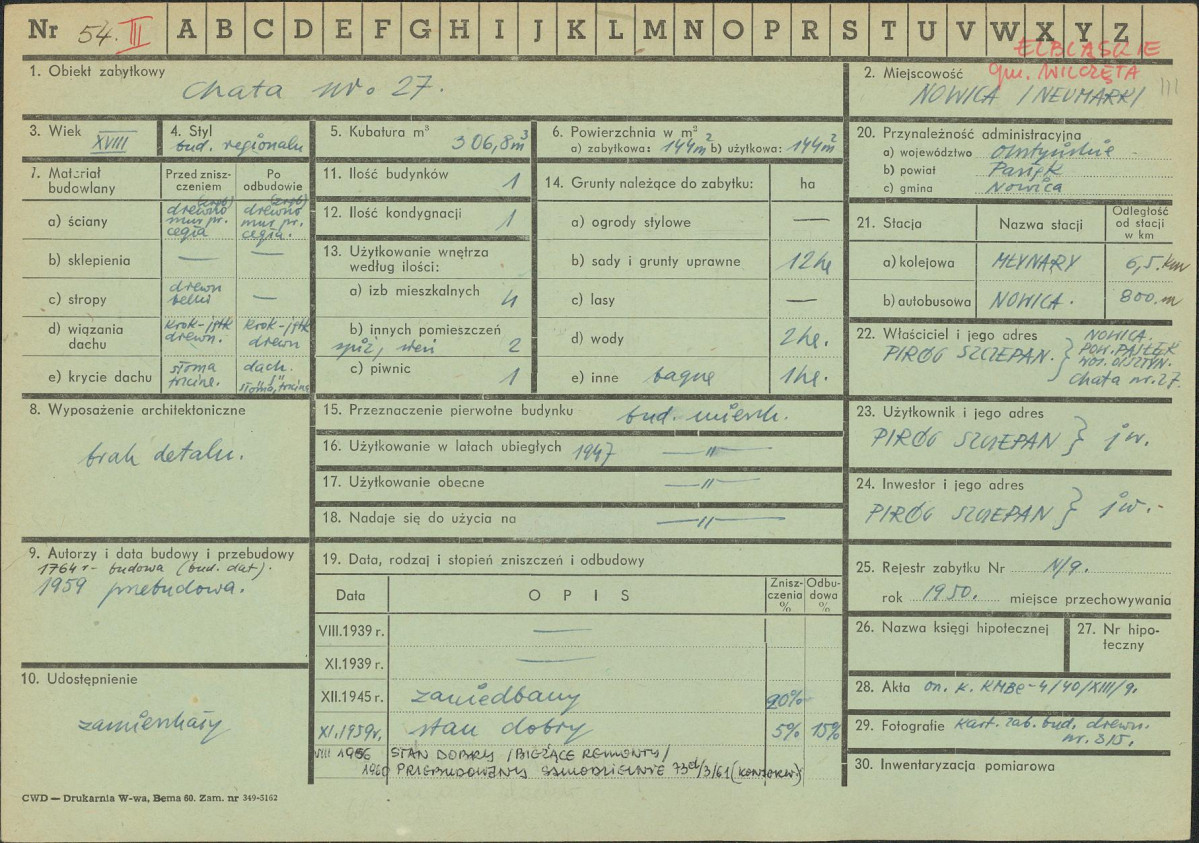 Nr 54. III A B C D E F G H I J K L M N O P R S T U V W X Y Z
ELBLĄSKIE
gm. WILCZĘTA
1. Obiekt zabytkowy
chata nr. 27.
2. Miejscowość
NOWICA /NEUMARK/
3. Wiek
XVIII
4. Styl
bud. regionaln
5. Kubatura m³
306,8m³
6. Powierzchnia w m²
a) zabytkowa: 144m² b) użytkowa: 144m²
7. Materiał budowlany
Przed zniszczeniem
Po odbudowie
a) ściany
drewno (zrąb) mur pr. cegła
drewno (zrąb) mur pr. cegła.
b) sklepienia — —
c) stropy
drewn belki —
d) wiązania dachu
krok-jętk drewn.
krok-jętk drewn
e) krycie dachu
słoma trzcina.
dach. słoma, trzcina
8. Wyposażenie architektoniczne
brak detalu.
9. Autorzy i data budowy i przebudowy
1764 r- budowa (bud. dat).
1959 przebudowa.
10. Udostępnienie
zamieszkały
11. Ilość budynków 1
12. Ilość kondygnacji 1
13. Użytkowanie wnętrza według ilości:
a) izb mieszkalnych 4
b) innych pomieszczeń
spiż, sień 2
c) piwnic 1
14. Grunty należące do zabytku: ha
a) ogrody stylowe —
b) sady i grunty uprawne 12 ha
c) lasy —
d) wody 2 ha.
e) inne bagna 1 ha.
15. Przeznaczenie pierwotne budynku bud. mieszk.
16. Użytkowanie w latach ubiegłych 1947 —"—
17. Użytkowanie obecne —"—
18. Nadaje się do użycia na —"—
19. Data, rodzaj i stopień zniszczeń i odbudowy
Data OPIS Zniszczenia % Odbudowa %
VIII.1939 r. —
XI.1939 r. —
XII.1945 r. zaniedbany 20%
XI.1959 r. stan dobry 5% 15%
VIII 1956 STAN DOBRY /BIEŻĄCE REMONTY/
1960 PRZEBUDOWANY SAMODZIELNIE 73d/3/61 (KONSERW)
20. Przynależność administracyjna
a) województwo olsztyńskie
b) powiat Pasłęk
c) gmina Nowica
21. Stacja Nazwa stacji Odległość od stacji w km
a) kolejowa MŁYNARY 6,5. km
b) autobusowa NOWICA. 800. m
22. Właściciel i jego adres
PIRÓG SZCZEPAN. } NOWICA. POW. PASŁĘK WOJ. OLSZTYN. chata nr. 27.
23. Użytkownik i jego adres
PIRÓG SZCZEPAN } jw.
24. Inwestor i jego adres
PIRÓG SZCZEPAN } jw.
25. Rejestr zabytku Nr N/9.
rok 1950. miejsce przechowywania
26. Nazwa księgi hipotecznej
27. Nr hipoteczny
28. Akta on. k. KMBe-4/40/XIII/9.
29. Fotografie Kart. zab. bud. drewn.
nr. 315.
30. Inwentaryzacja pomiarowa
CWD — Drukarnia W-wa, Bema 60. Zam. nr 349-5162